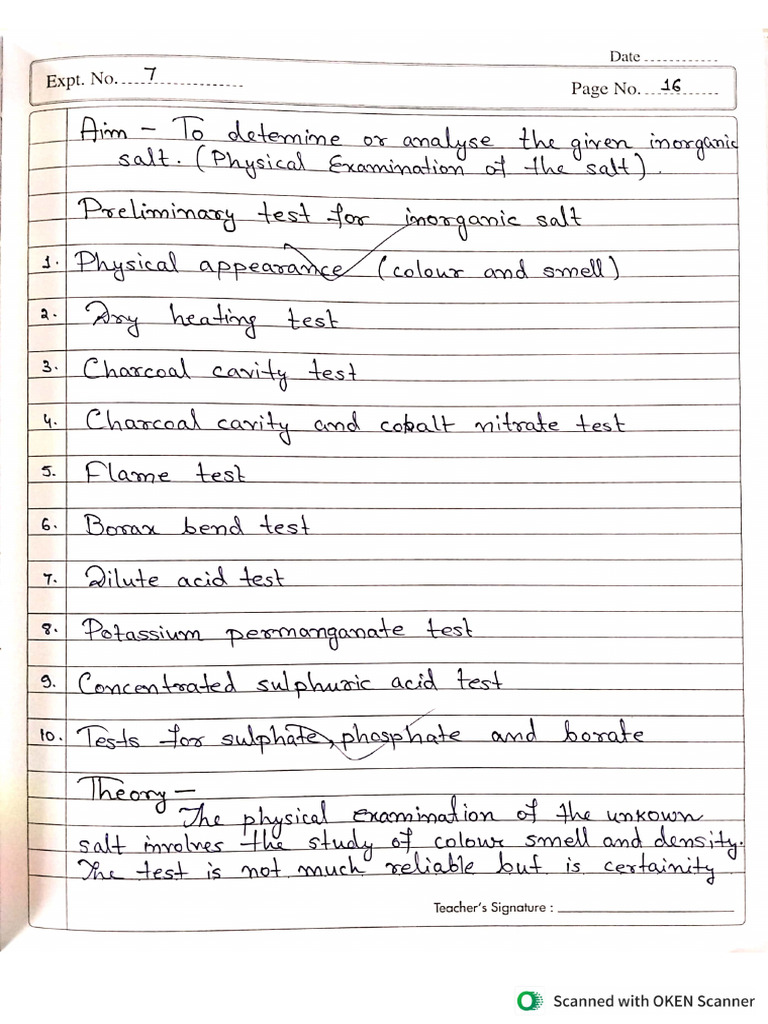 Date ............
Expt. No. 7
Page No. 16
Aim - To detemine or analyse the given inorganic
salt. (Physical Examination of the salt).
Preliminary test for inorganic salt
1. Physical appearance (colour and smell)
2. Dry heating test
3. Charcoal cavity test
4. Charcoal cavity and cobalt nitrate test
5. Flame test
6. Borax bend test
7. Dilute acid test
8. Potassium permanganate test
9. Concentrated sulphuric acid test
10. Tests for sulphate, phosphate and borate
Theory -
The physical examination of the unkown
salt involves the study of colour smell and density.
The test is not much reliable but is certainity
Teacher's Signature : ____________
Scanned with OKEN Scanner